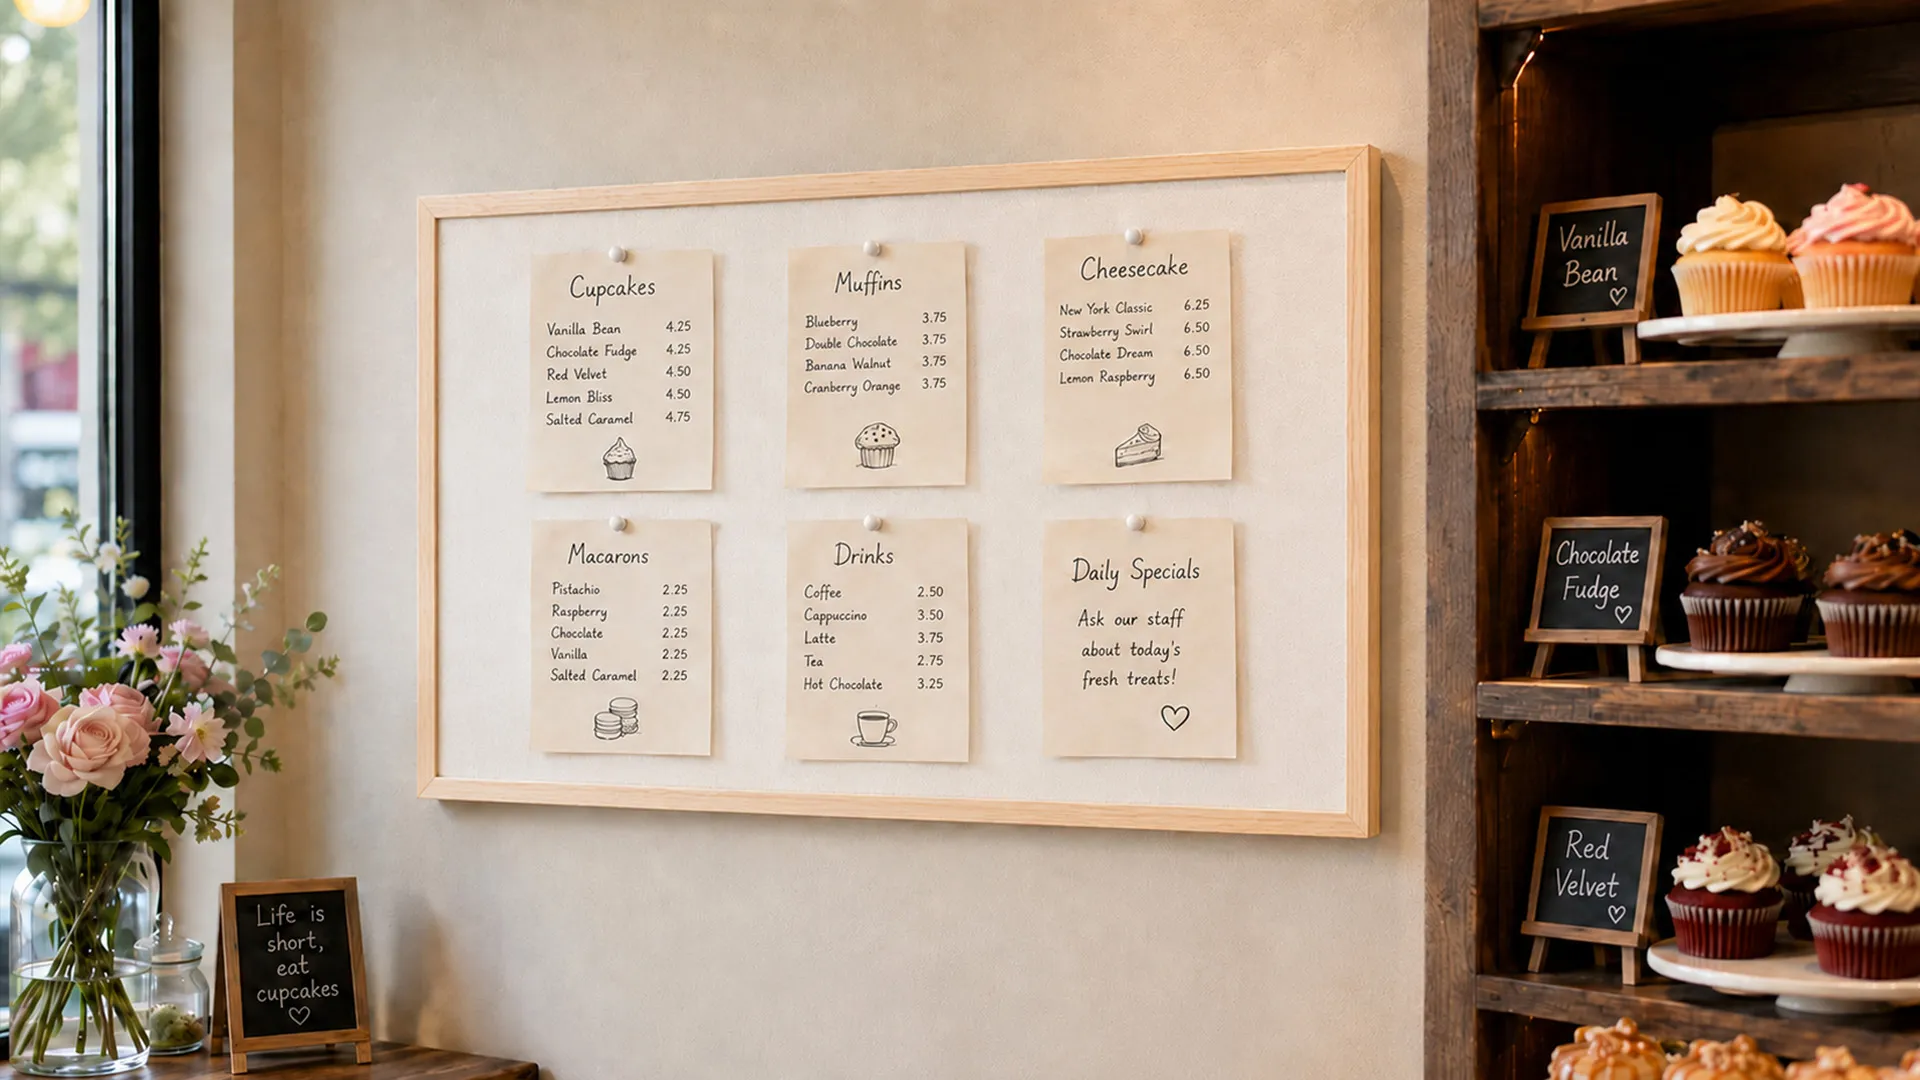 Cupcakes
Vanilla Bean 4.25
Chocolate Fudge 4.25
Red Velvet 4.50
Lemon Bliss 4.50
Salted Caramel 4.75
Muffins
Blueberry 3.75
Double Chocolate 3.75
Banana Walnut 3.75
Cranberry Orange 3.75
Cheesecake
New York Classic 6.25
Strawberry Swirl 6.50
Chocolate Dream 6.50
Lemon Raspberry 6.50
Macarons
Pistachio 2.25
Raspberry 2.25
Chocolate 2.25
Vanilla 2.25
Salted Caramel 2.25
Drinks
Coffee 2.50
Cappuccino 3.50
Latte 3.75
Tea 2.75
Hot Chocolate 3.25
Daily Specials
Ask our staff
about today's
fresh treats!
Vanilla
Bean
Chocolate
Fudge
Red
Velvet
Life is
short,
eat
cupcakes